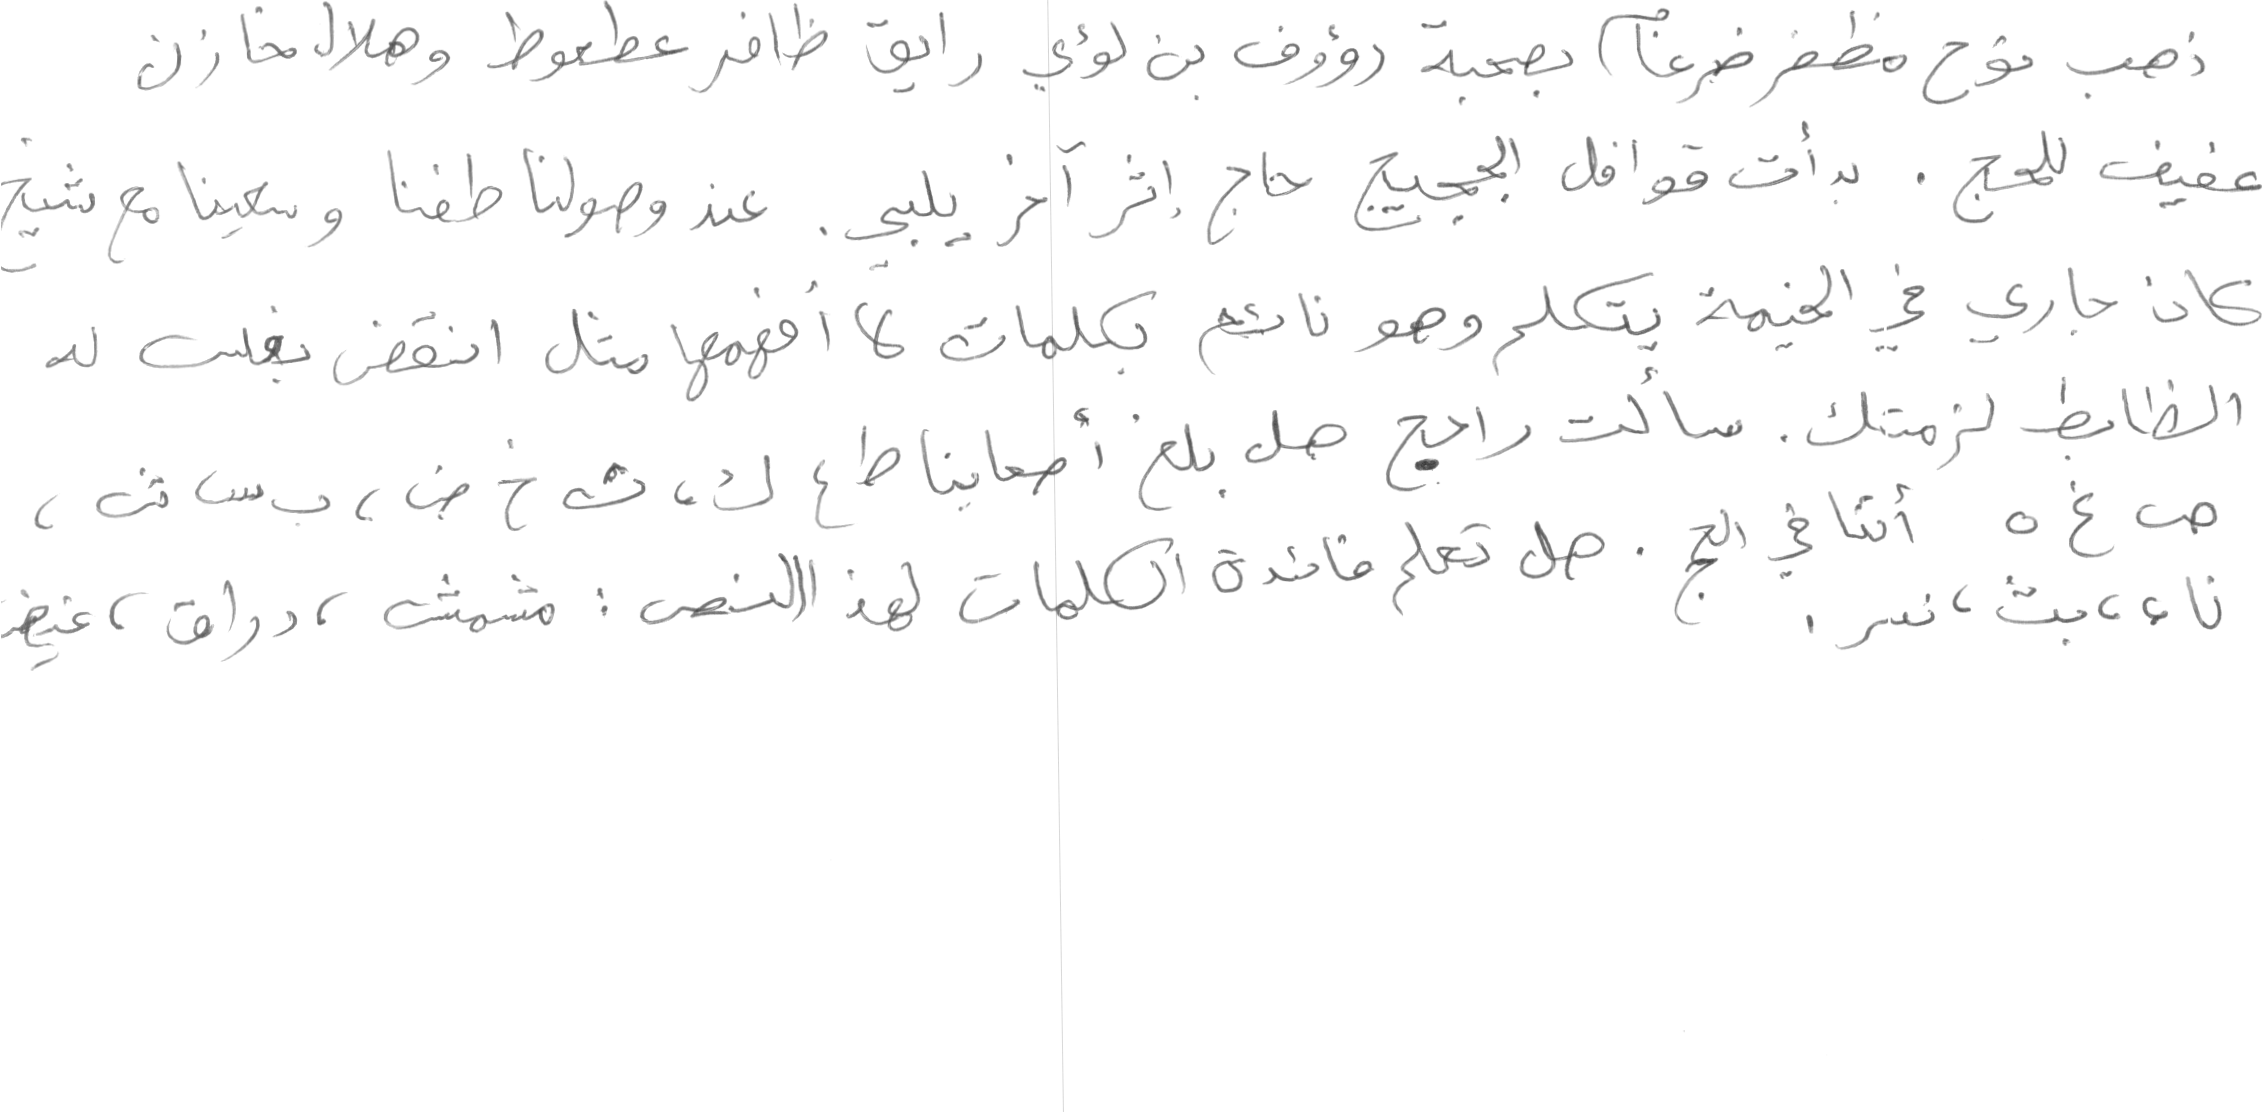 ذهب نوح مظفر ضرغام بصحبة رؤوف بن لؤي رايق ظافر عطعوط وهلال مخازن
عفيف للحج . بدأت قوافل الحجيج حاج إثر آخر يلبي . عند وصولنا طفنا وسعينا مع شيخ
كان جاري في الخيمة يتكلم وهو نائم بكلمات لا أفهمها مثل انقض بغلس له
الظابط لزمتك . سألت راجح هل بلغ أصحابنا ط ع ك ، ث خ ض ، ب س ت ،
ص غ ه أننا في الحج . هل تعلم فائدة الكلمات لهذا النص : مشمش ، دراق ، عنيف
ناء ، بث ، نسر .